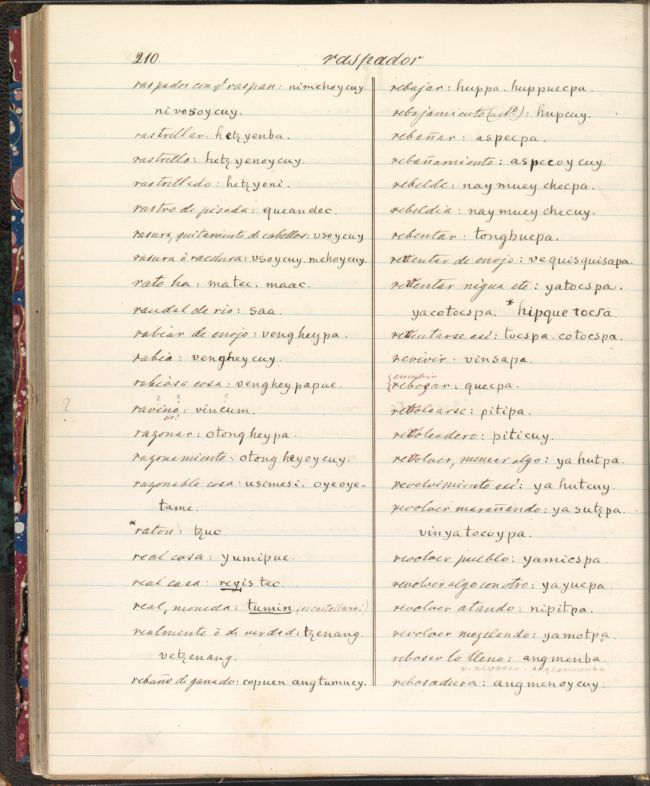 210.
raspador
raspador con q.e raspan: nimehoycuy.
nivosoycuy.
rastrillar: hetzyenba.
rastrillo: hetzyenoycuy.
rastrillado: hetzyeni.
rastro de pisada: queandec.
rasura, quitamiento de cabellos: vsoycuy
rasura ò raedura: vsoycuy. mehoycuy.
rato ha: matec. maac.
raudal de rio: saa.
rabiar de enojo: vengheypa.
rabia: vengheycuy.
rabiosa cosa: vengheypapue.
? ravino: vincum.
sic!
razonar: otongheypa.
razonamiento: otongheyoycuy.
razonable cosa: usimesi. oyeoye-
tame.
*raton: tzuc.
real cosa: yumipue.
real casa: reyis tec.
real, moneda: tumin (es castellano!)
realmente ò de verdad: tzenang.
vetzenang.
rebaño de ganado: copuen angtumuey.
rebajar: huppa. huppuecpa.
rebajamiento (act.o): hupcuy.
rebañar: aspecpa.
rebañamiento: aspecoycuy.
rebelde: nay muey checpa.
rebeldia: nay muey checuy.
rebentar: tongbuepa.
rebentar de enojo: vequisquisapa.
rebentar nigua etc: yatocspa.
yacotocspa. * hipque tocsa
rebentarse asi: tocspa. cotocspa.
revivir. vinsapa.
rebozar: quecpa.
rebolearse: pitipa.
reboleadero: piticuy.
rebolver, menear algo: ya hutpa.
revolvimiento asi: ya hutcuy.
revolvir marañando: ya sutzpa.
vinyatocoypa.
revolver pueblo: yamicspa.
revolver algo con otro: yayuepa.
revolver atando: nipitpa.
revolver mezclando: yamotpa.
rebosar lo lleno: angmenba.
v. revosar. anghemnenba
rebosadura: angmenoycuy.